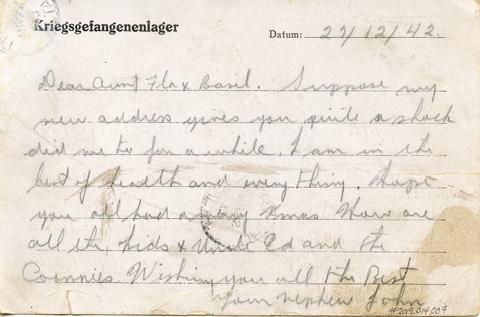 Kriegsgefangenenlager
Datum: 27/12/42.
Dear Aunt Flo & Basil. Suppose my
new address gives you quite a shock
did me to for a while. I am in the
best of health and every thing. Hope
you all had a merry Xmas How are
all the kids & Uncle Ed and the
Wishing you all the Best
Your nephew John
AF2019.014.007